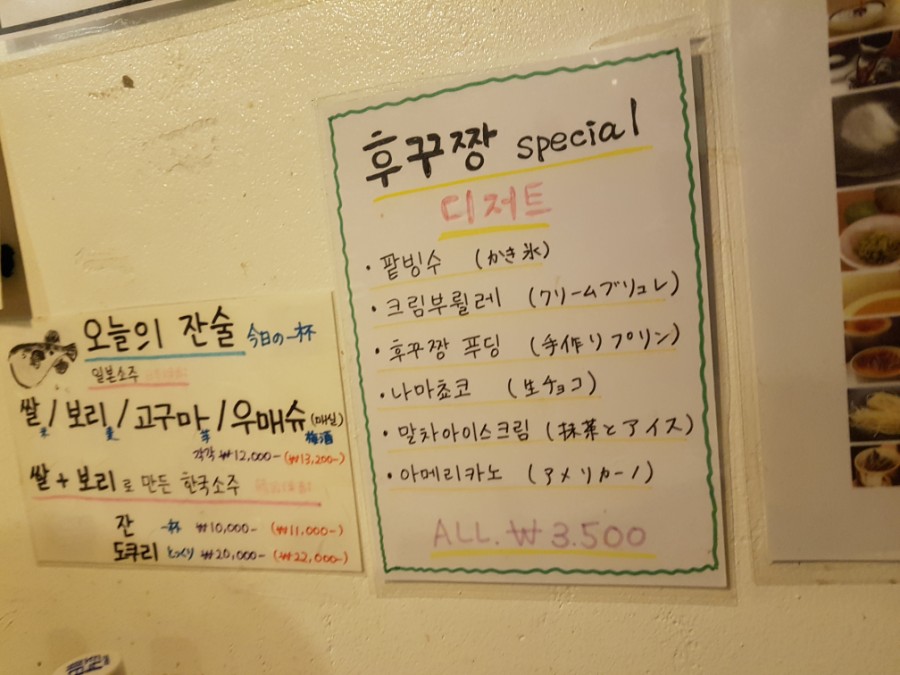 오늘의 잔술 今日の一杯
일본소주
쌀/보리/고구마/우매슈(매실)
米 麦 芋 梅酒
각각 ₩12,000- (₩13,200-)
쌀 + 보리로 만든 한국소주
잔 一杯 ₩10,000- (₩11,000-)
도쿠리 とっくり ₩20,000- (₩22,000-)
후꾸짱 special
디저트
· 팥빙수 (かき氷)
· 크림부륄레 (クリームブリュレ)
· 후꾸짱 푸딩 (手作りプリン)
· 나마쵸코 (生チョコ)
· 말차아이스크림 (抹茶とアイス)
· 아메리카노 (アメリカーノ)
ALL. ₩3.500